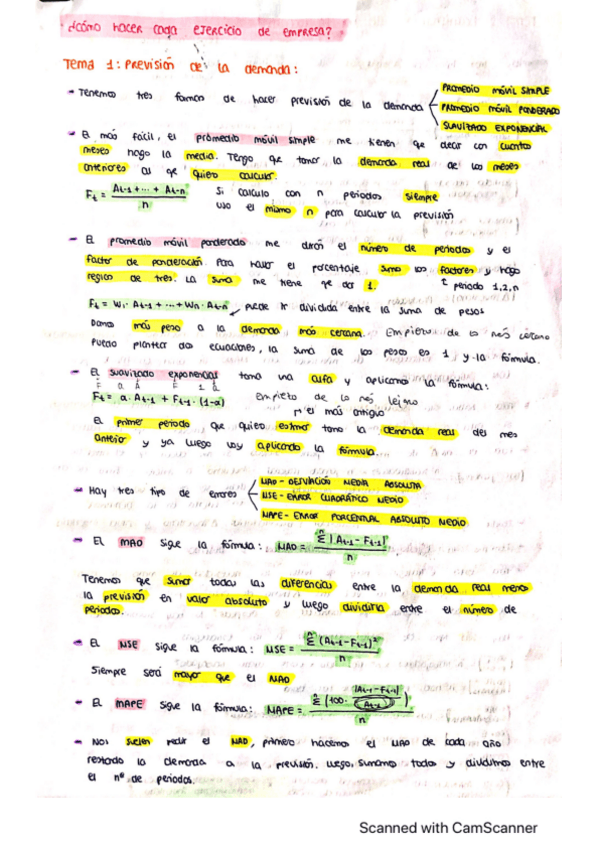 ¿cómo hacer cada ejercicio de empresa?
Tema 1: Previsión de la demanda:
- Tenemos tres formas de hacer previsión de la demanda
PROMEDIO MÓVIL SIMPLE
PROMEDIO MÓVIL PONDERADO
SUAVIZADO EXPONENCIAL
- El más fácil, el promedio móvil simple me tienen que decir con cuantos
meses hago la media. Tengo que tomar la demanda real de los meses
anteriores al que quiero calcular.
Ft = At-1 + ... + At-n / n
Si calculo con n periodos siempre
uso el mismo n para calcular la previsión
- El promedio móvil ponderado me dirán el número de periodos y el
factor de ponderación. Para hacer el porcentaje sumo los factores y hago
regla de tres. La suma me tiene que dar 1.
periodo 1,2,n
Ft = W1· At-1 + ... + Wn· At-n
puede ir dividida entre la suma de pesos
Damos más peso a la demanda más cercana. Empiezo de lo más cercano
Puedo plantear dos ecuaciones, la suma de los pesos es 1 y la fórmula.
- El suavizado exponencial toma una alfa y aplicamos la fórmula:
F a A F 1 a
Ft = α · At-1 + Ft-1 · (1-α)
Empiezo de lo más lejano
el más antiguo
El primer periodo que quiero estimar tomo la demanda real del mes
anterior y ya luego voy aplicando la fórmula.
- Hay tres tipo de errores
MAD - DESVIACIÓN MEDIA ABSOLUTA
MSE - ERROR CUADRÁTICO MEDIO
MAPE - ERROR PORCENTUAL ABSOLUTO MEDIO
- El MAD sigue la fórmula: MAD = Σ |At-1 - Ft-1| / n
Tenemos que sumar todas las diferencias entre la demanda real menos
la previsión en valor absoluto y luego dividirla entre el número de
periodos.
- El MSE sigue la fórmula: MSE = Σ (At-1 - Ft-1)² / n
Siempre será mayor que el MAD
- El MAPE sigue la fórmula: MAPE = Σ (100 · |At-1 - Ft-1| / At-1) / n
- Nos suelen pedir el MAD, primero hacemos el MAD de cada año
restando la demanda a la previsión. Luego, sumamos todas y dividimos entre
el nº de periodos.
Scanned with CamScanner